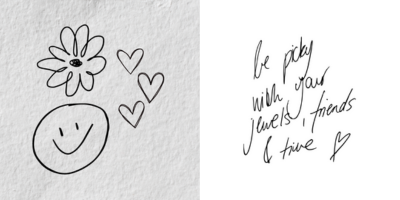 be picky
with your
jewels, friends
& time